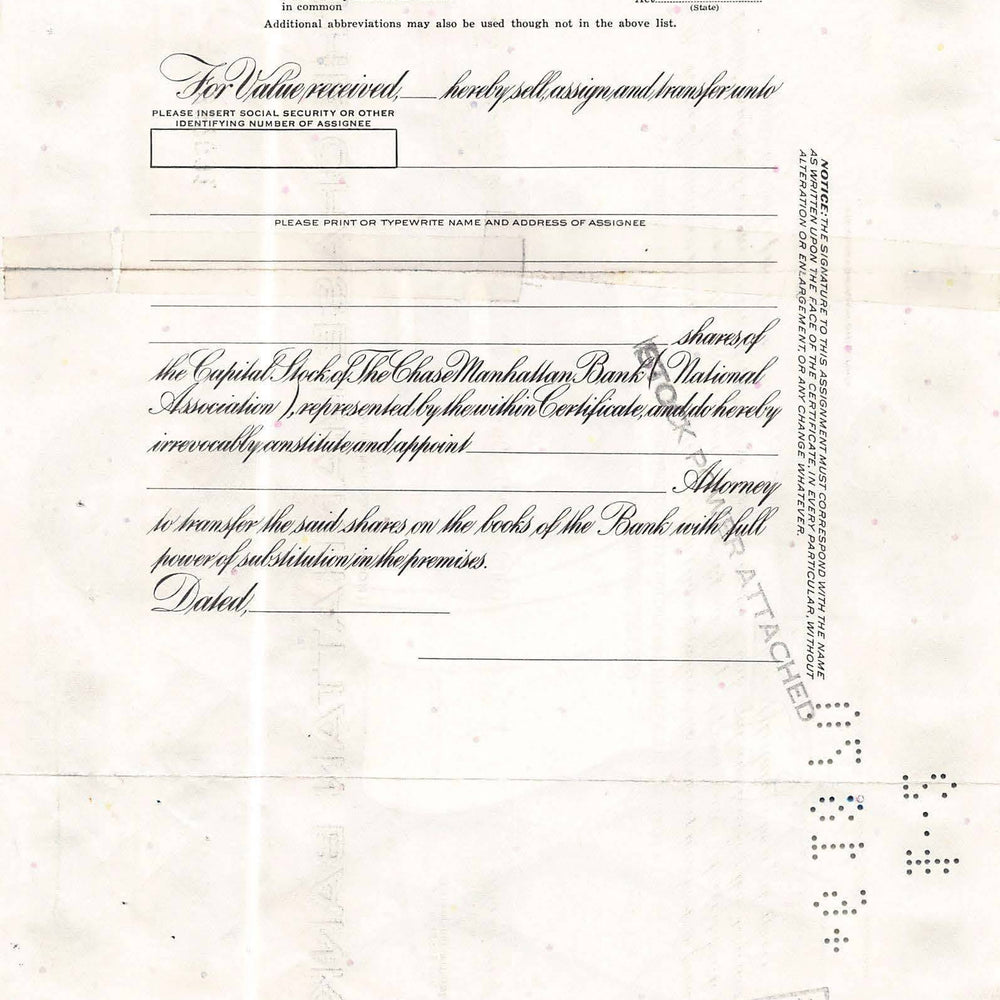 in common
Act
(State)
Additional abbreviations may also be used though not in the above list.
For Value received, hereby sell, assign and transfer unto
PLEASE INSERT SOCIAL SECURITY OR OTHER
IDENTIFYING NUMBER OF ASSIGNEE
PLEASE PRINT OR TYPEWRITE NAME AND ADDRESS OF ASSIGNEE
shares of
the Capital Stock of The Chase Manhattan Bank ( National
Association ), represented by the within Certificate, and do hereby
irrevocably constitute and appoint
Attorney
to transfer the said shares on the books of the Bank with full
power of substitution in the premises.
Dated,
STOCK POWER ATTACHED
NOTICE: THE SIGNATURE TO THIS ASSIGNMENT MUST CORRESPOND WITH THE NAME
AS WRITTEN UPON THE FACE OF THE CERTIFICATE, IN EVERY PARTICULAR, WITHOUT
ALTERATION OR ENLARGEMENT, OR ANY CHANGE WHATEVER.